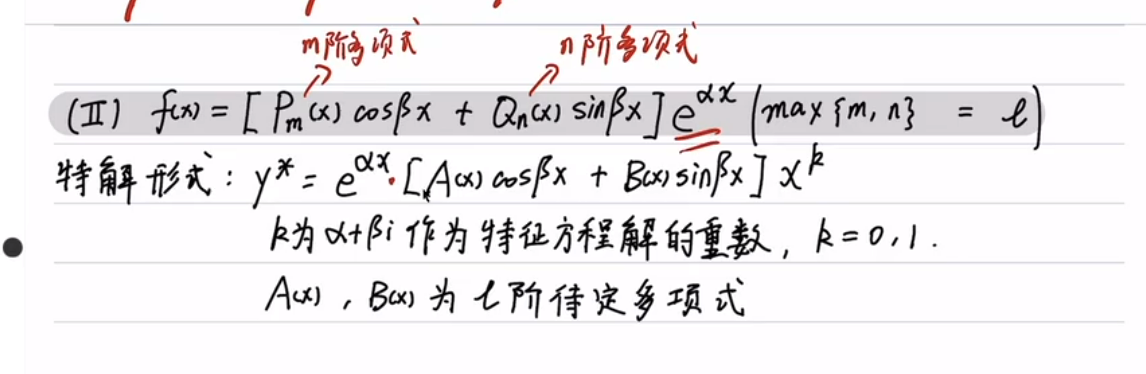 m阶多项式 n阶多项式
(Ⅱ) f(x) = [Pₘ(x) cosβx + Qₙ(x) sinβx] e^{αx} (max{m, n} = l)
特解形式: y* = e^{αx}·[A(x) cosβx + B(x) sinβx] x^k
k为 α+βi 作为特征方程解的重数, k=0,1.
A(x), B(x) 为 l 阶待定多项式